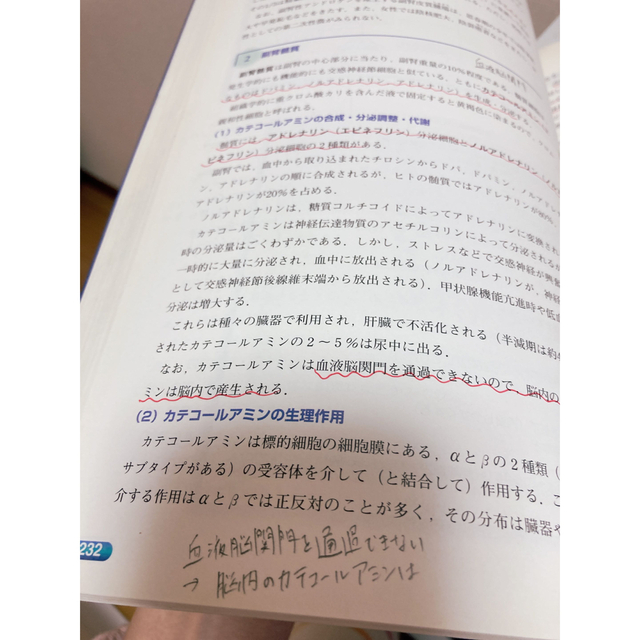 2 副腎髄質
副腎髄質は副腎の中心部分に当たり，副腎重量の10%程度である．
発生学的にも機能的にも交感神経節細胞と似ている．ともに
なるのはドパミン，ノルアドレナリン，アドレナリン）を生成・分泌する．
組織学的に重クロム酸カリを含んだ液で固定すると黄褐色に染まるので，
親和性細胞と呼ばれる．
（1）カテコールアミンの合成・分泌調整・代謝
髄質には，アドレナリン（エピネフリン）分泌細胞とノルアドレナリン（ノル
ピネフリン）分泌細胞の2種類がある．
副腎では，血中から取り込まれたチロシンからドパ，ドパミン，ノルアドレナリ
ン，アドレナリンの順に合成されるが，ヒトの髄質ではアドレナリンが80%，
アドレナリンが20%を占める．
ノルアドレナリンは，糖質コルチコイドによってアドレナリンに変換され
カテコールアミンは神経伝達物質のアセチルコリンによって分泌されるが
時の分泌量はごくわずかである．しかし，ストレスなどで交感神経が興奮
一時的に大量に分泌され，血中に放出される（ノルアドレナリンが，神経
として交感神経節後線維末端から放出される）．甲状腺機能亢進時や低血
分泌は増大する．
これらは種々の臓器で利用され，肝臓で不活化される（半減期は約
されたカテコールアミンの2～5%は尿中に出る．
なお，カテコールアミンは血液脳関門を通過できないので，脳内の
ミンは脳内で産生される．
（2）カテコールアミンの生理作用
カテコールアミンは標的細胞の細胞膜にある，αとβの2種類（
サブタイプがある）の受容体を介して（と結合して）作用する．こ
介する作用はαとβでは正反対のことが多く，その分布は臓器や
232
血液脳関門を通過できない
→ 脳内のカテコールアミンは